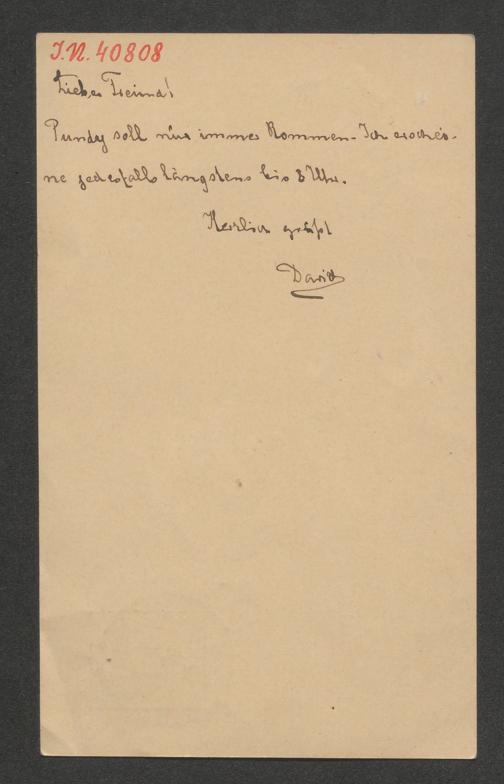 I.N. 40808
Lieber Freund!
Pundy soll nur immer kommen. Ich erschei-
ne jedesfalls längstens bis 8 Uhr.
Herzlich grüßt
David